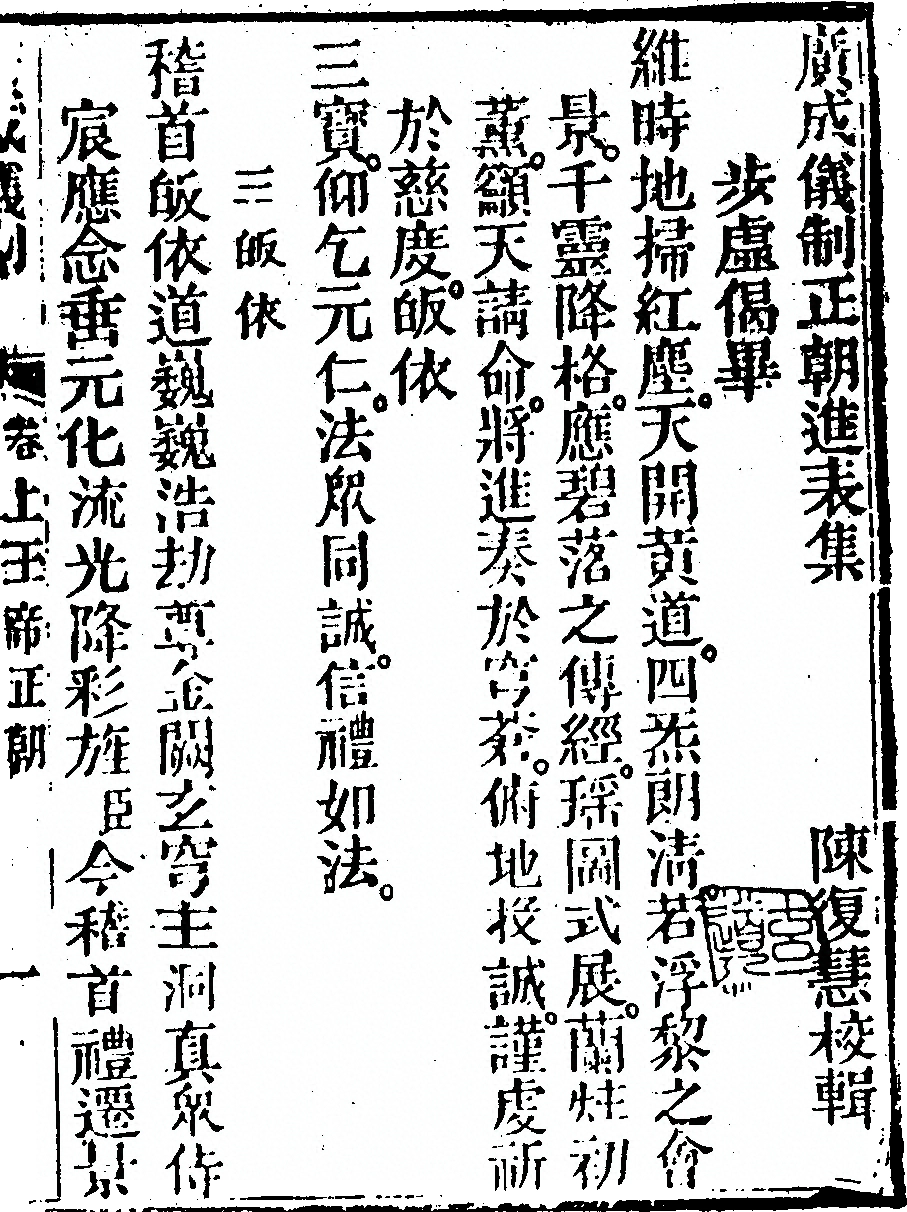 廣成儀制正朝進表集　陳復慧校輯
步虛偈畢
維時地掃紅塵。天開黄道。四炁朗清。若浮黎之會
景。千靈降格。應碧落之傳經。瑶圖式展。蘭炷初
薰。籲天請命。將進奏於穹蒼。俯地投誠。謹虔祈
於慈度。皈依
三寶。仰乞元仁。法眾同誠。信禮如法。
三皈依
稽首皈依道巍巍浩劫尊金闕玄穹主洞真眾侍
宸應念垂元化流光降彩旌臣今稽首禮遷景
卷上玉帝正朝
一